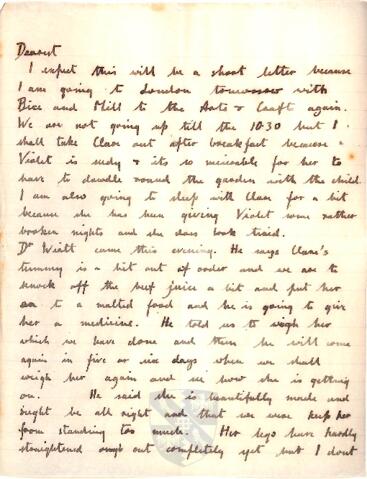 Dearest
I expect this will be a short letter because
I am going to London tomorrow with
Bice and Mill to the Arts & Craft again.
We are not going up till the 10.30 but I
shall take Clare out after breakfast because
Violet is seedy & its so miserable for her to
have to dawdle round the garden with the child.
I am also going to sleep with Clare for a bit
because she has been giving Violet some rather
broken nights and she does look tired.
Dr Wiatt came this evening. He says Clare's
tummy is a bit out of order and we are to
knock off the beef juice a bit and put her
on to a malted food and he is going to give
her a medicine. He told us to weigh her
which we have done and then he will come
again in five or six days when we shall
weigh her again and see how she is getting
on. He said she is beautifully made and
ought be all right and that we were keep her
from standing too much. Her legs have hardly
straightened out completely yet but I dont